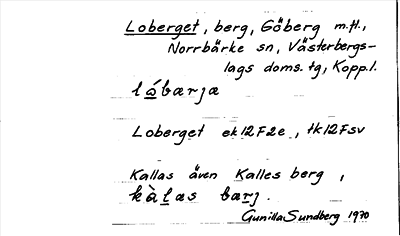 Loberget, berg, Göberg m.fl.,
Norrbärke sn, Västerbergs-
lags doms. tg, Kopp.l.
lóbærjæ
Loberget ek12F2e, tk12Fsv
Kallas även Kalles berg,
kàlas bærj.
Gunilla Sundberg 1970